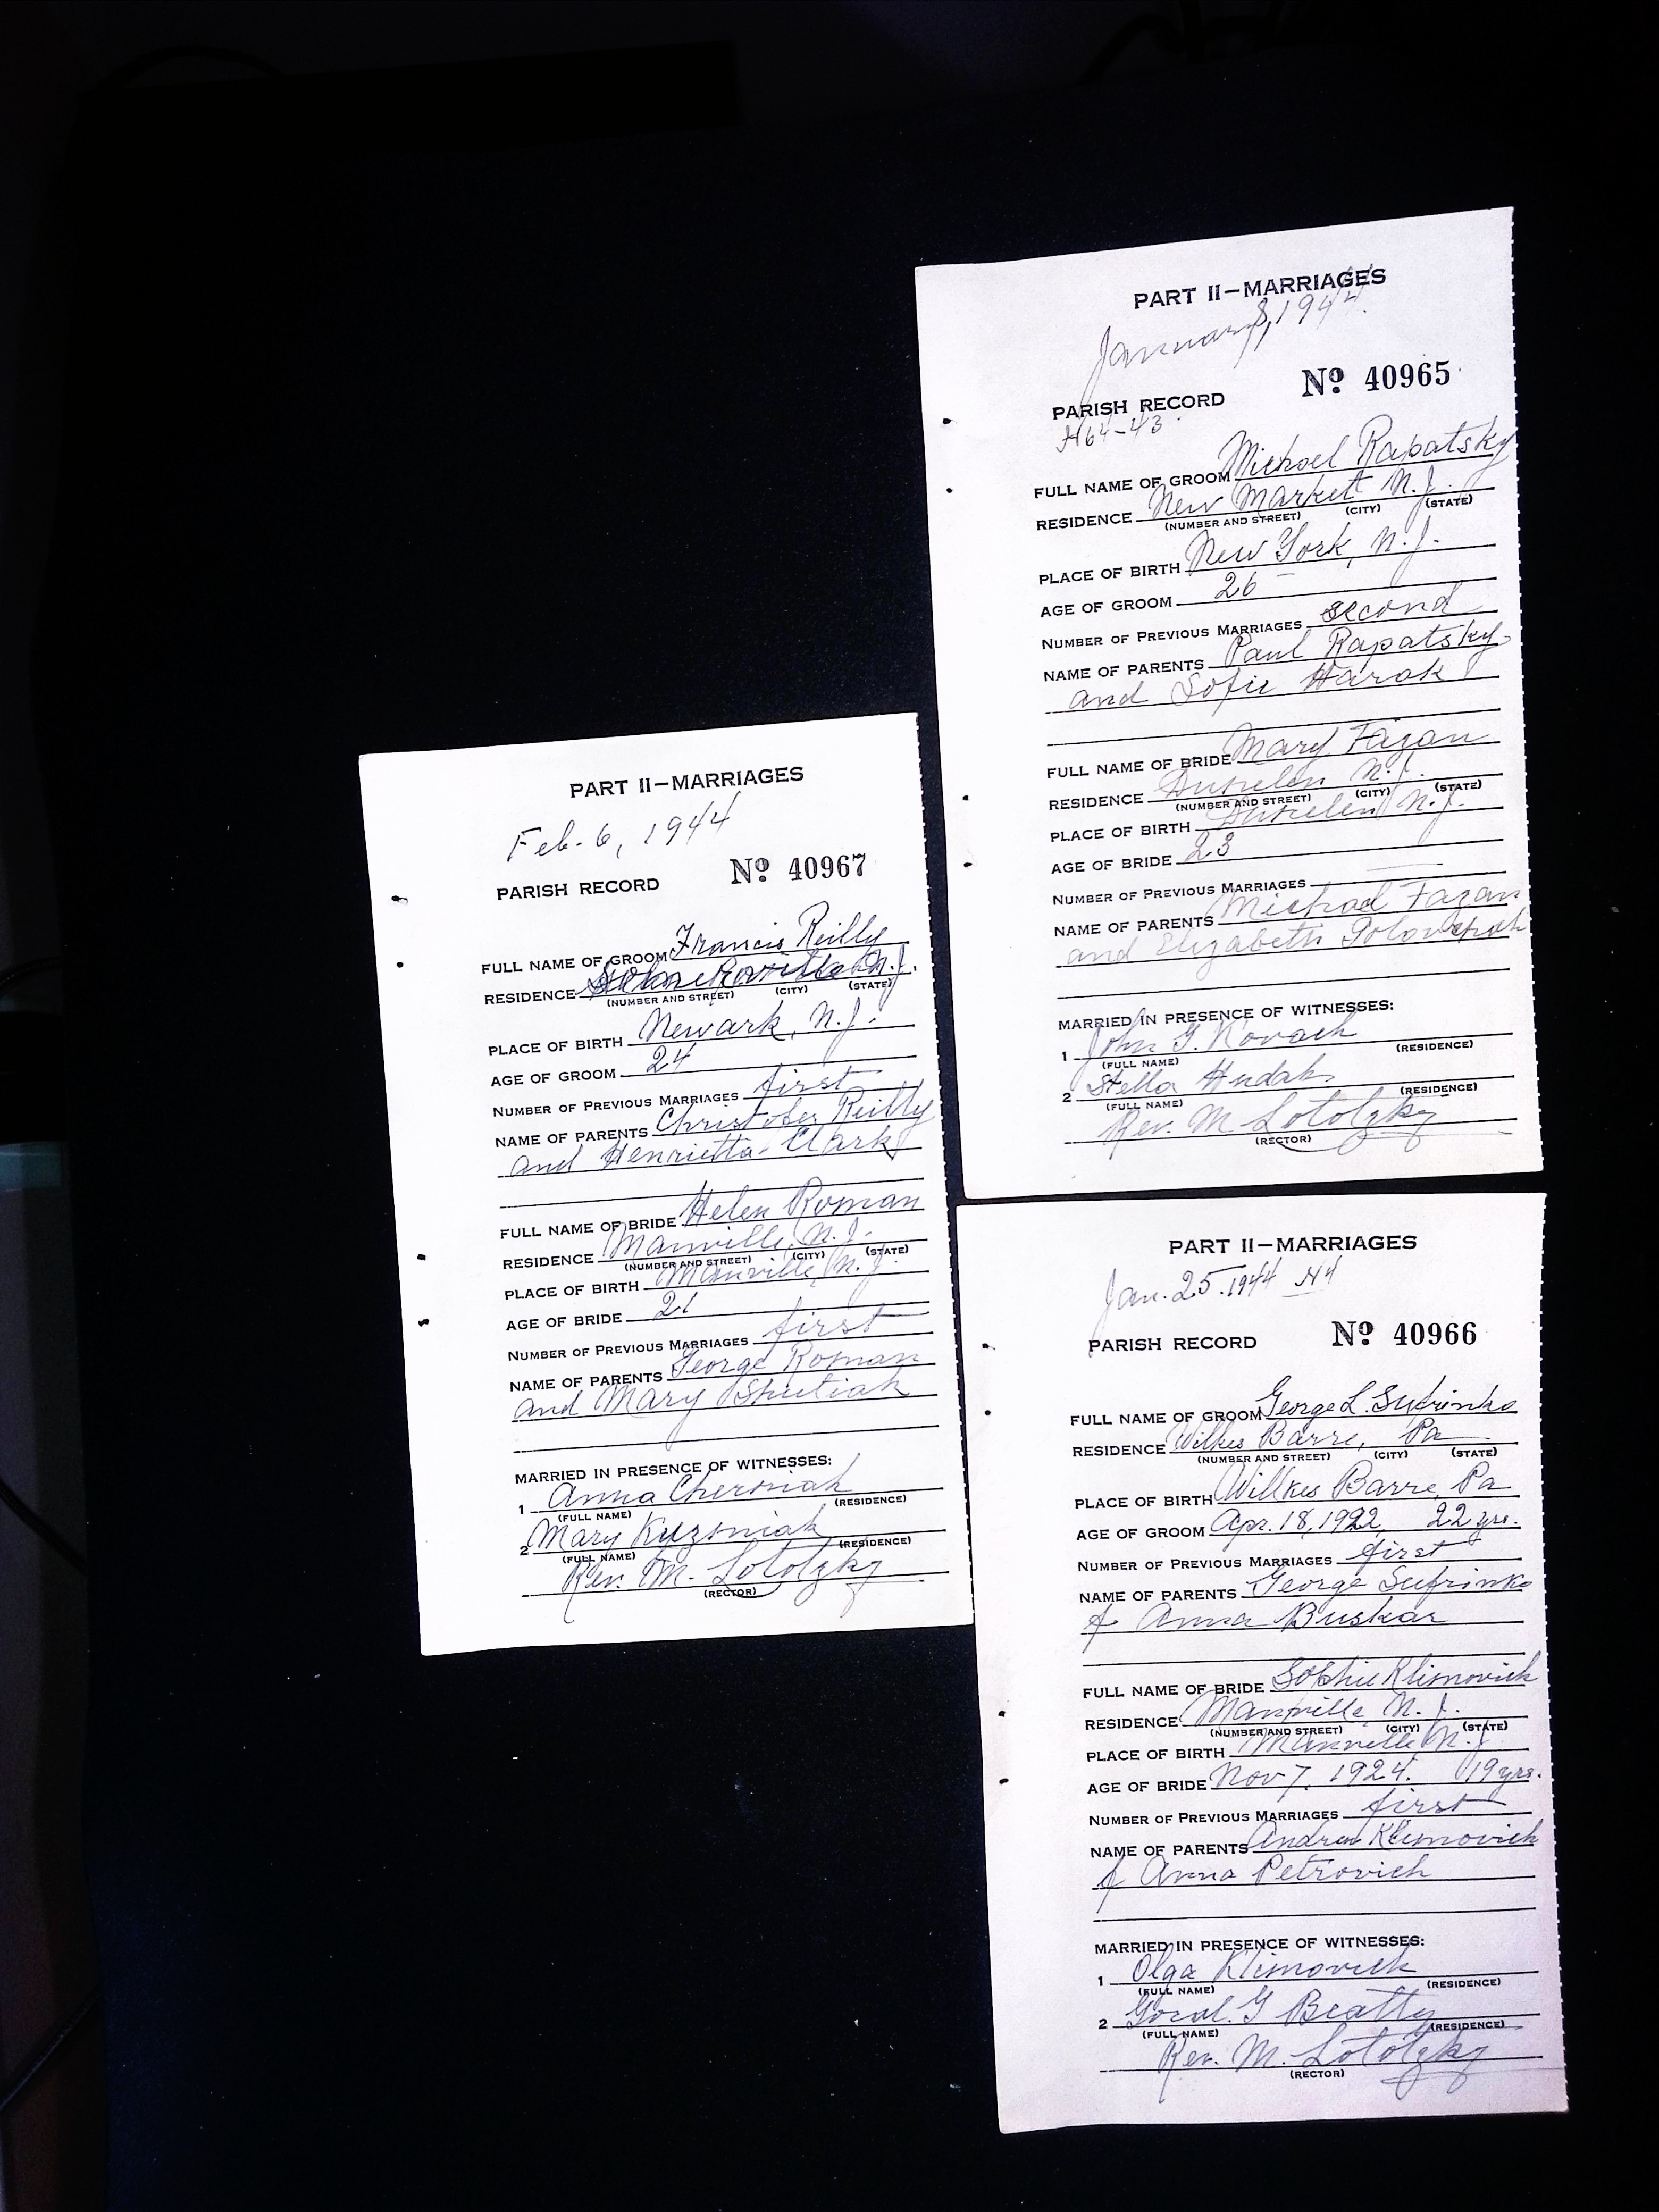 PART II—MARRIAGES
January 8, 1944.
No 40965
PARISH RECORD
H64-43
FULL NAME OF GROOM Michael Rapatsky
RESIDENCE New Market N.J.
(NUMBER AND STREET) (CITY) (STATE)
PLACE OF BIRTH New York, N.J.
AGE OF GROOM 26
NUMBER OF PREVIOUS MARRIAGES second
NAME OF PARENTS Paul Rapatsky
and Sofie Harak
FULL NAME OF BRIDE Mary Fazan
RESIDENCE N.J.
(NUMBER AND STREET) (CITY) (STATE)
PLACE OF BIRTH N.J.
AGE OF BRIDE 23
NUMBER OF PREVIOUS MARRIAGES —
NAME OF PARENTS Michael Fazan
and Elizabeth
MARRIED IN PRESENCE OF WITNESSES:
1 John G. Kovach
(FULL NAME) (RESIDENCE)
2 Stella Hudak
(FULL NAME) (RESIDENCE)
Rev. M. Lotolzky
(RECTOR)
PART II—MARRIAGES
Feb. 6, 1944
No 40967
PARISH RECORD
FULL NAME OF GROOM Francis Reilly
RESIDENCE N.J.
(NUMBER AND STREET) (CITY) (STATE)
PLACE OF BIRTH Newark, N.J.
AGE OF GROOM 24
NUMBER OF PREVIOUS MARRIAGES first
NAME OF PARENTS Christofer Reilly
and Henrietta Clark
FULL NAME OF BRIDE Helen Roman
RESIDENCE Manville, N.J.
(NUMBER AND STREET) (CITY) (STATE)
PLACE OF BIRTH Manville, N.J.
AGE OF BRIDE 21
NUMBER OF PREVIOUS MARRIAGES first
NAME OF PARENTS George Roman
and Mary
MARRIED IN PRESENCE OF WITNESSES:
1 Anna Cherniak
(FULL NAME) (RESIDENCE)
2 Mary Kuzmiak
(FULL NAME) (RESIDENCE)
Rev. M. Lotolzky
(RECTOR)
PART II—MARRIAGES
Jan. 25. 1944 H4
No 40966
PARISH RECORD
FULL NAME OF GROOM George L. Sufrinko
RESIDENCE Wilkes Barre, Pa
(NUMBER AND STREET) (CITY) (STATE)
PLACE OF BIRTH Wilkes Barre, Pa
AGE OF GROOM Apr. 18, 1922, 22 yrs.
NUMBER OF PREVIOUS MARRIAGES first
NAME OF PARENTS George Sufrinko
& Anna Buskar
FULL NAME OF BRIDE Sophie Klimovich
RESIDENCE Manville N.J.
(NUMBER AND STREET) (CITY) (STATE)
PLACE OF BIRTH Manville N.J.
AGE OF BRIDE Nov 7, 1924. 19 yrs.
NUMBER OF PREVIOUS MARRIAGES first
NAME OF PARENTS Andrew Klimovich
& Anna Petrovich
MARRIED IN PRESENCE OF WITNESSES:
1 Olga Klimovich
(FULL NAME) (RESIDENCE)
2 G Beatty
(FULL NAME) (RESIDENCE)
Rev. M. Lotolzky
(RECTOR)